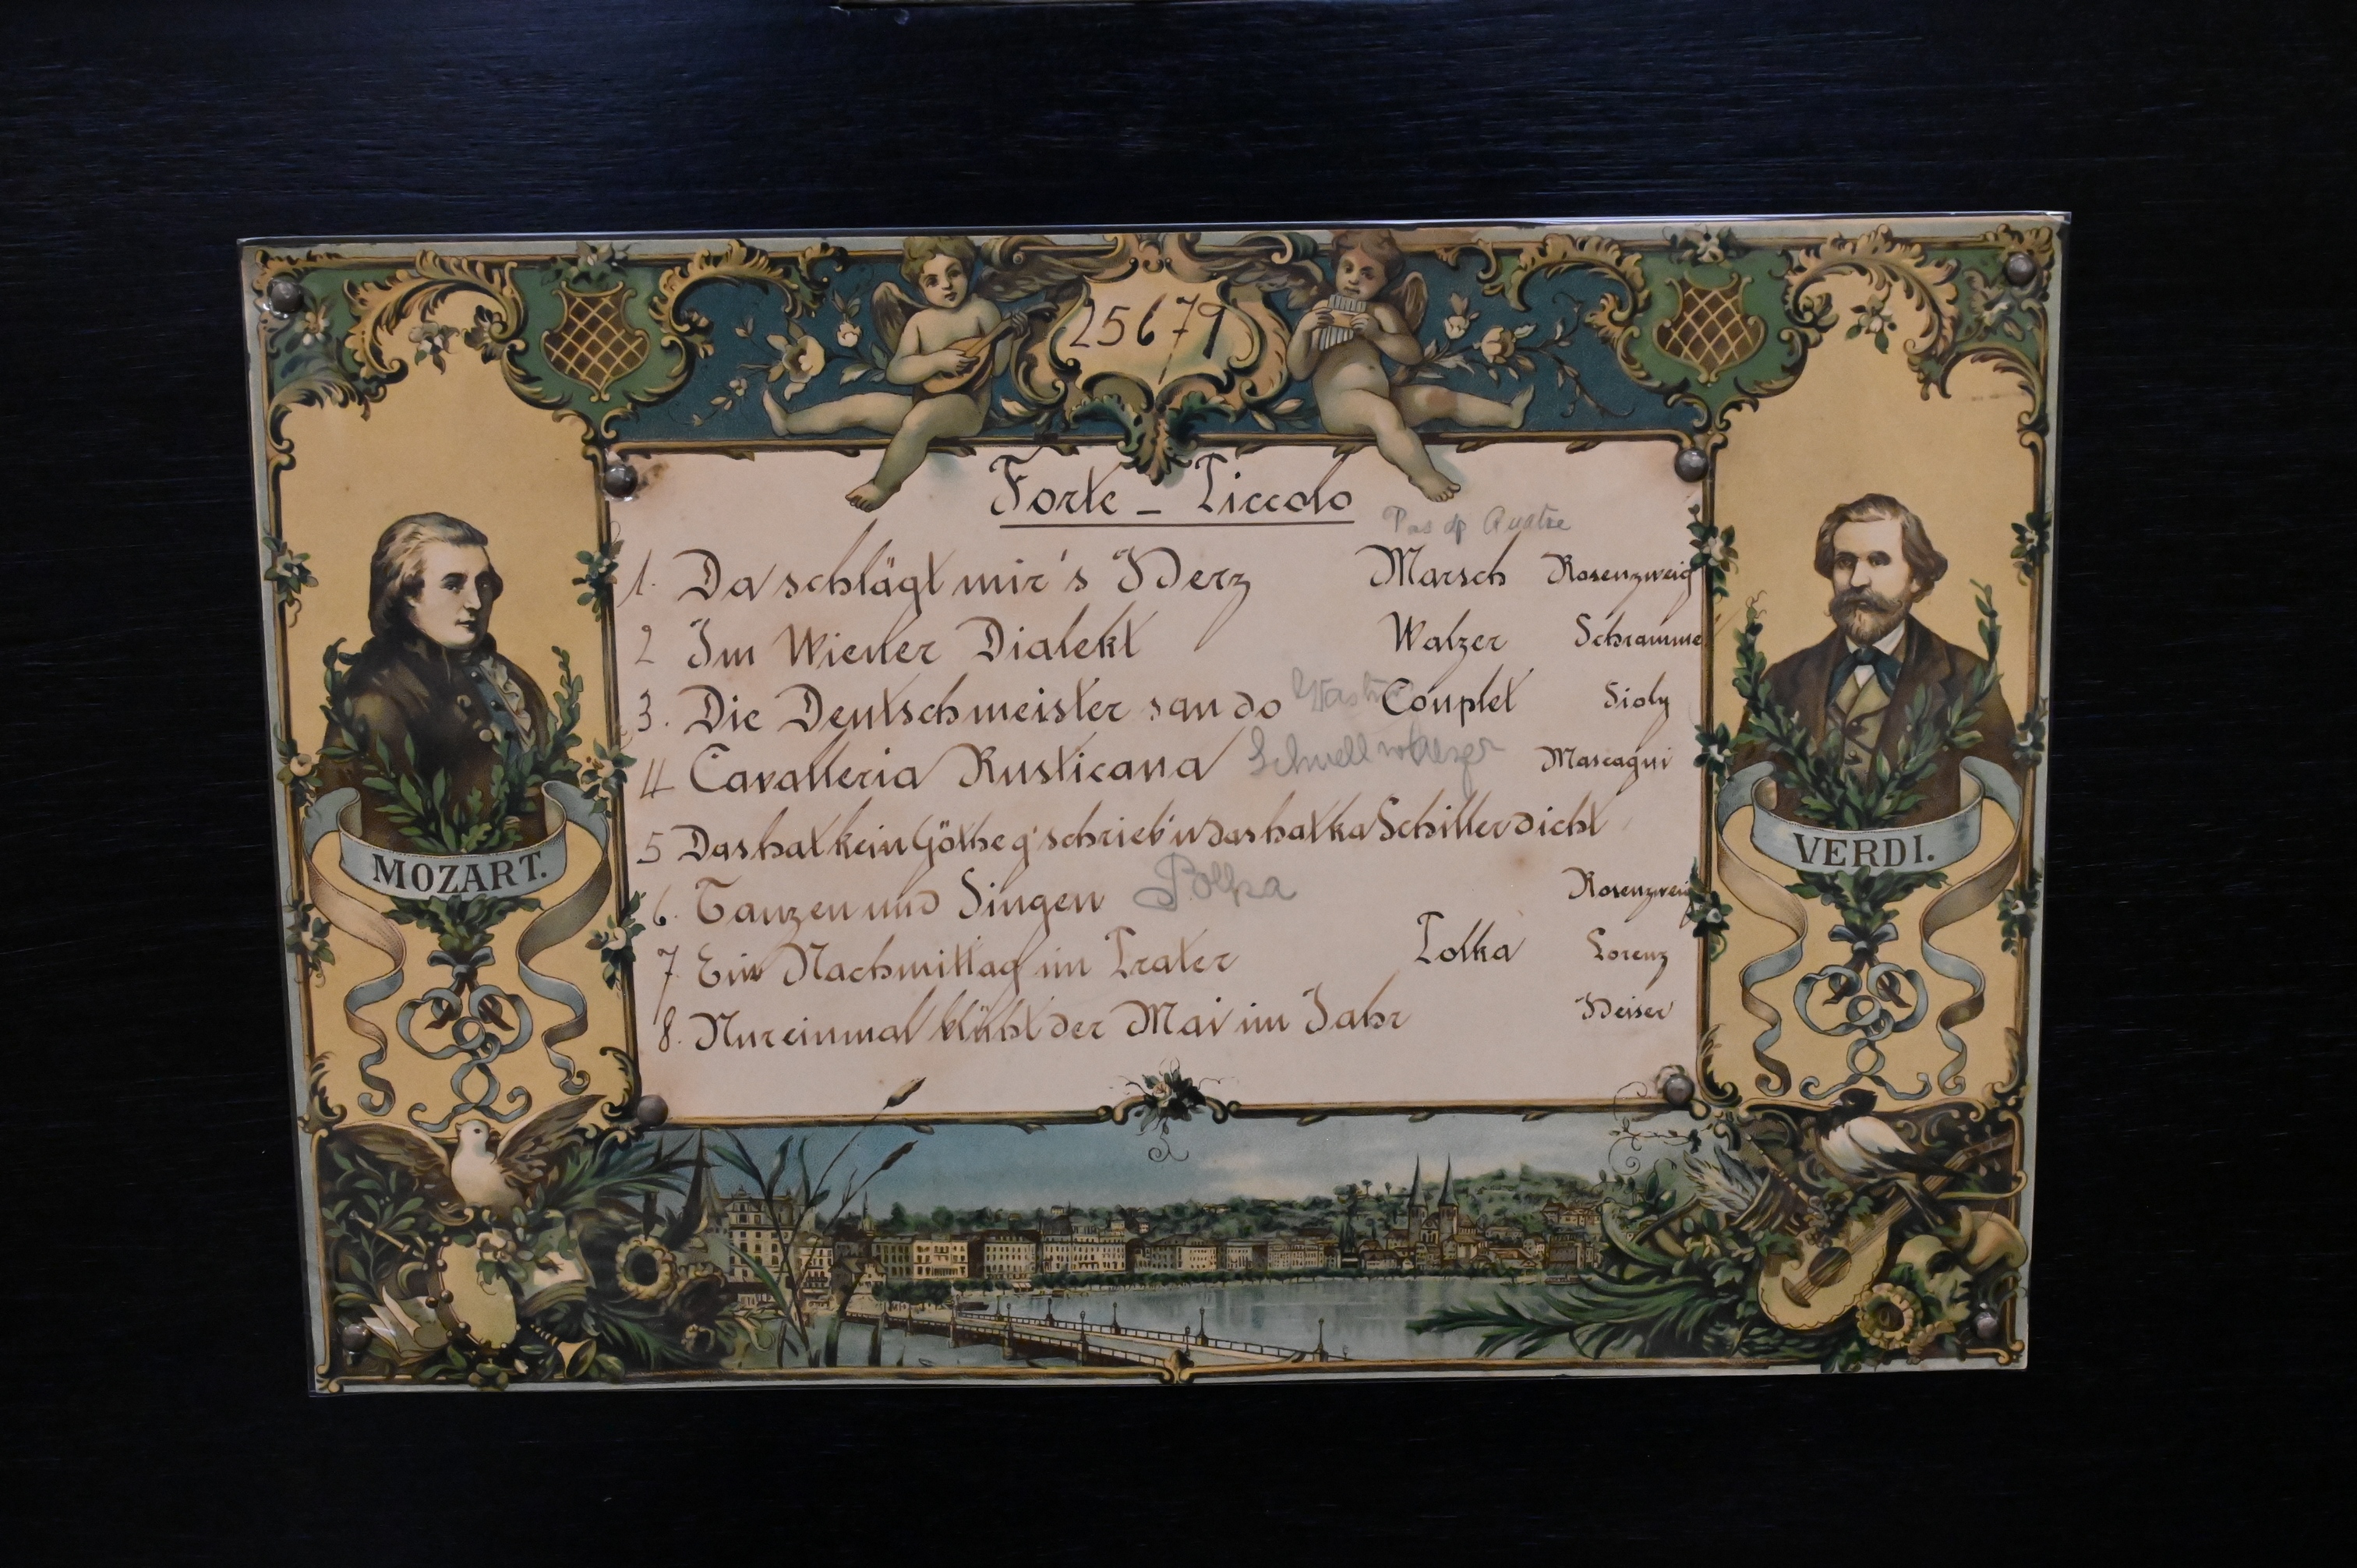 25679
Forte - Piccolo
Pas de Quatre
1. Da schlägt mir's Herz Marsch Rosenzweig
2 Im Wiener Dialekt Walzer Schramme
3. Die Deutschmeister san do Couplet Sioly
4 Cavalleria Rusticana Schnellwalzer Mascagni
5 Das hat kein Göthe g'schrieb'n das hat ka Schiller dicht
6. Tanzen und Singen Polka Rosenzweig
7 Ein Nachmittag im Prater Polka Lorenz
8. Nur einmal blüht der Mai im Jahr Heiser
MOZART.
VERDI.